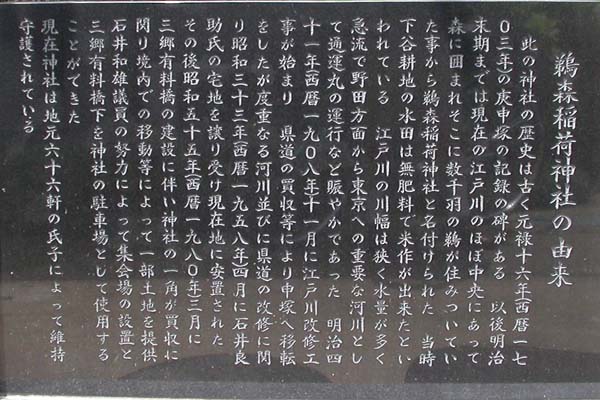 鵜森稲荷神社の由来
此の神社の歴史は古く元禄十六年(西暦一七
〇三年)の庚申塚の記録の碑がある　以後明治
末期までは現在の江戸川のほぼ中央にあって
森に囲まれそこに数千羽の鵜が住みついてい
た事から鵜森稲荷神社と名付けられた　当時
下谷耕地の水田は無肥料で米作が出来たとい
われている　江戸川の川幅は狭く水量が多く
急流で野田方面から東京への重要な河川とし
て通運丸の運行など賑やかであった　明治四
十一年(西暦一九〇八年)十一月に江戸川改修工
事が始まり　県道の買収等により申塚へ移転
をしたが度重なる河川並びに県道の改修に関
り昭和三十三年(西暦一九五八年)四月に石井良
助氏の宅地を譲り受け現在地に安置された
その後昭和五十五年(西暦一九八〇年)三月に
三郷有料橋の建設に伴い神社の一角が買収に
関り境内での移動等によって一部土地を提供
石井和雄議員の努力によって集会場の設置と
三郷有料橋下を神社の駐車場として使用する
ことができた
現在神社は地元六十六軒の氏子によって維持
守護されている